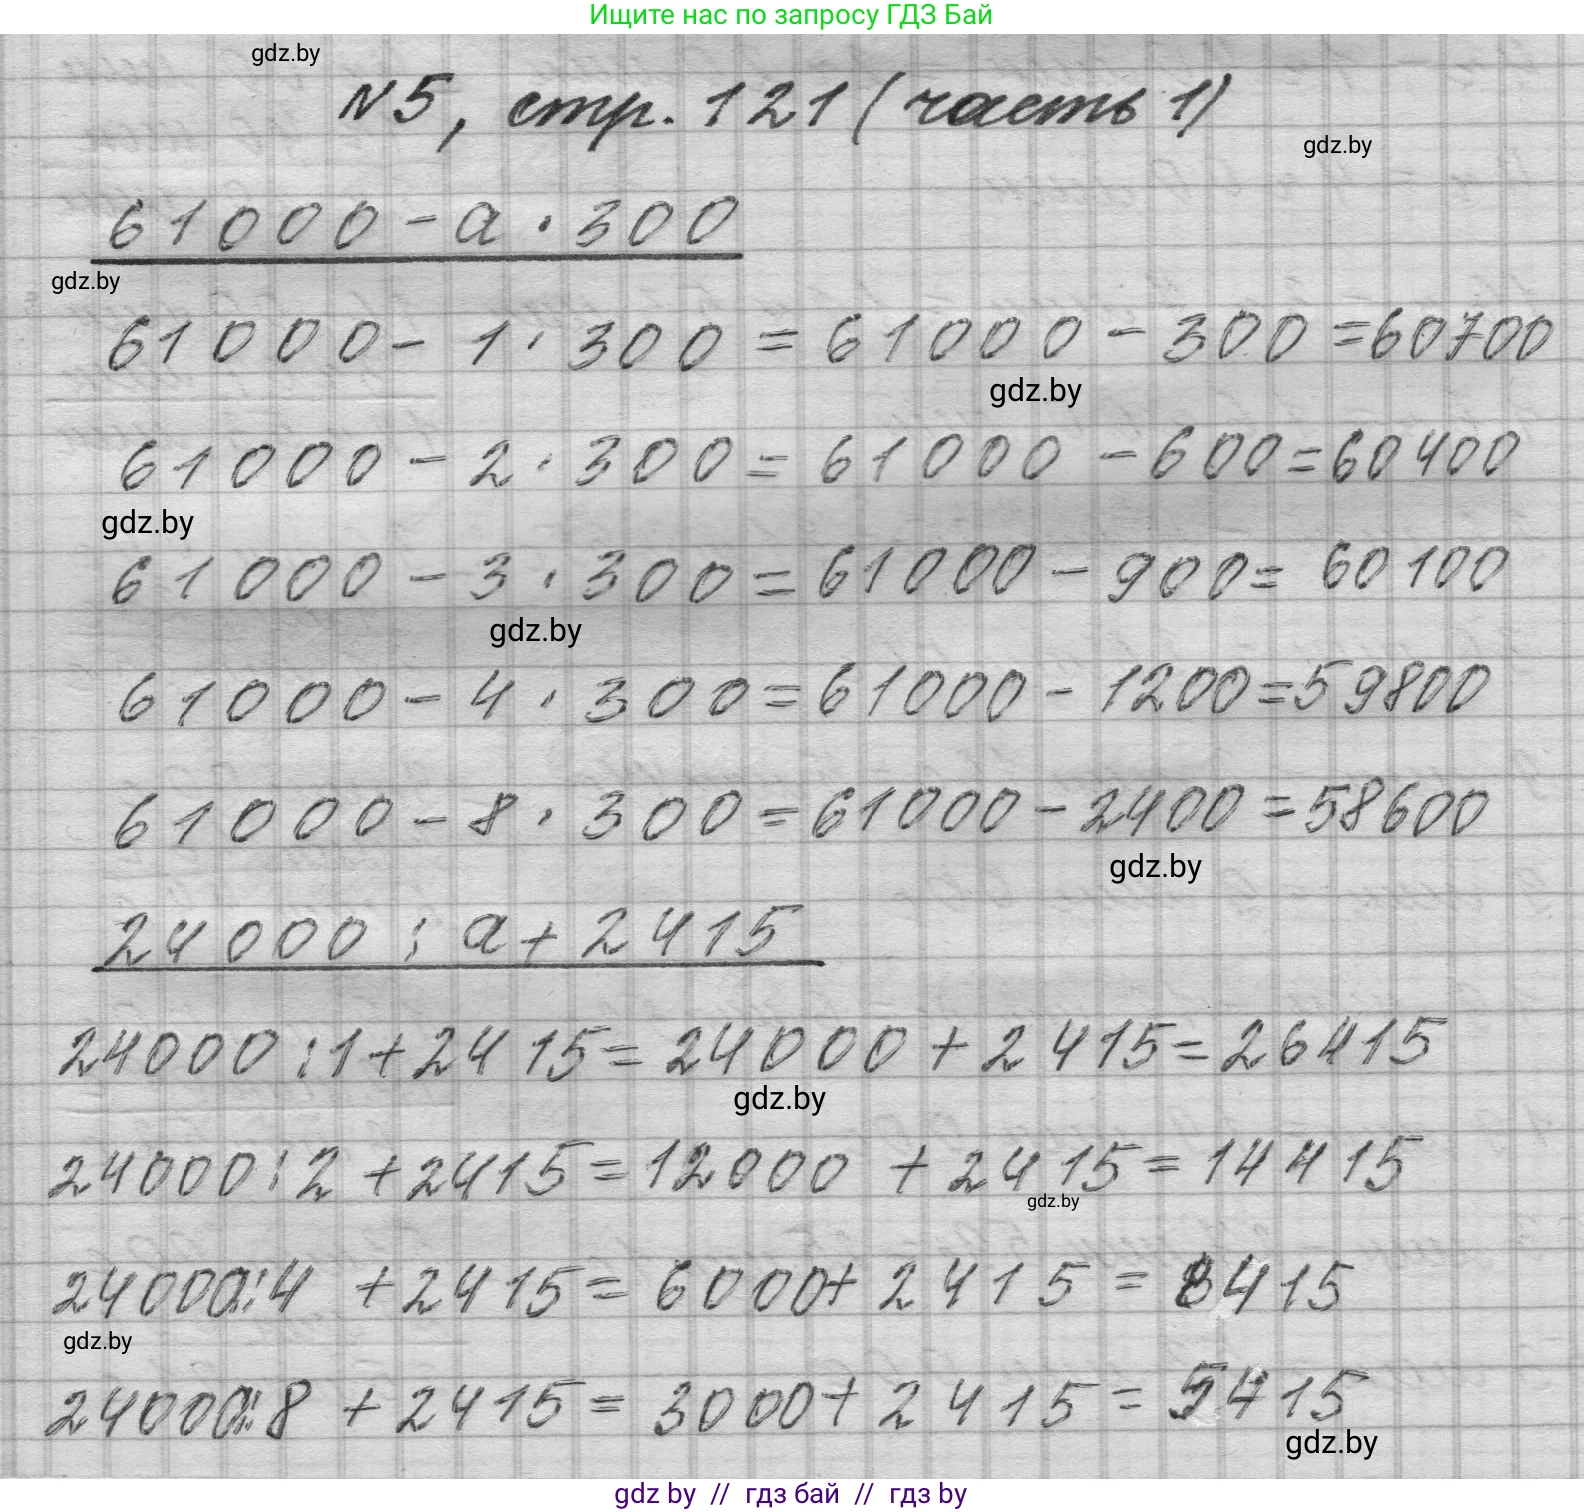 Ищите нас по запросу ГДЗ Бай
gdz.by
N5, стр. 121 (часть 1)
gdz.by
61000 - a · 300
gdz.by
61000 - 1 · 300 = 61000 - 300 = 60700
gdz.by
61000 - 2 · 300 = 61000 - 600 = 60400
gdz.by
61000 - 3 · 300 = 61000 - 900 = 60100
gdz.by
61000 - 4 · 300 = 61000 - 1200 = 59800
61000 - 8 · 300 = 61000 - 2400 = 58600
gdz.by
24000 : a + 2415
24000 : 1 + 2415 = 24000 + 2415 = 26415
gdz.by
24000 : 2 + 2415 = 12000 + 2415 = 14415
gdz.by
24000 : 4 + 2415 = 6000 + 2415 = 8415
gdz.by
24000 : 8 + 2415 = 3000 + 2415 = 5415
gdz.by
gdz by // гдз бай // гдз by